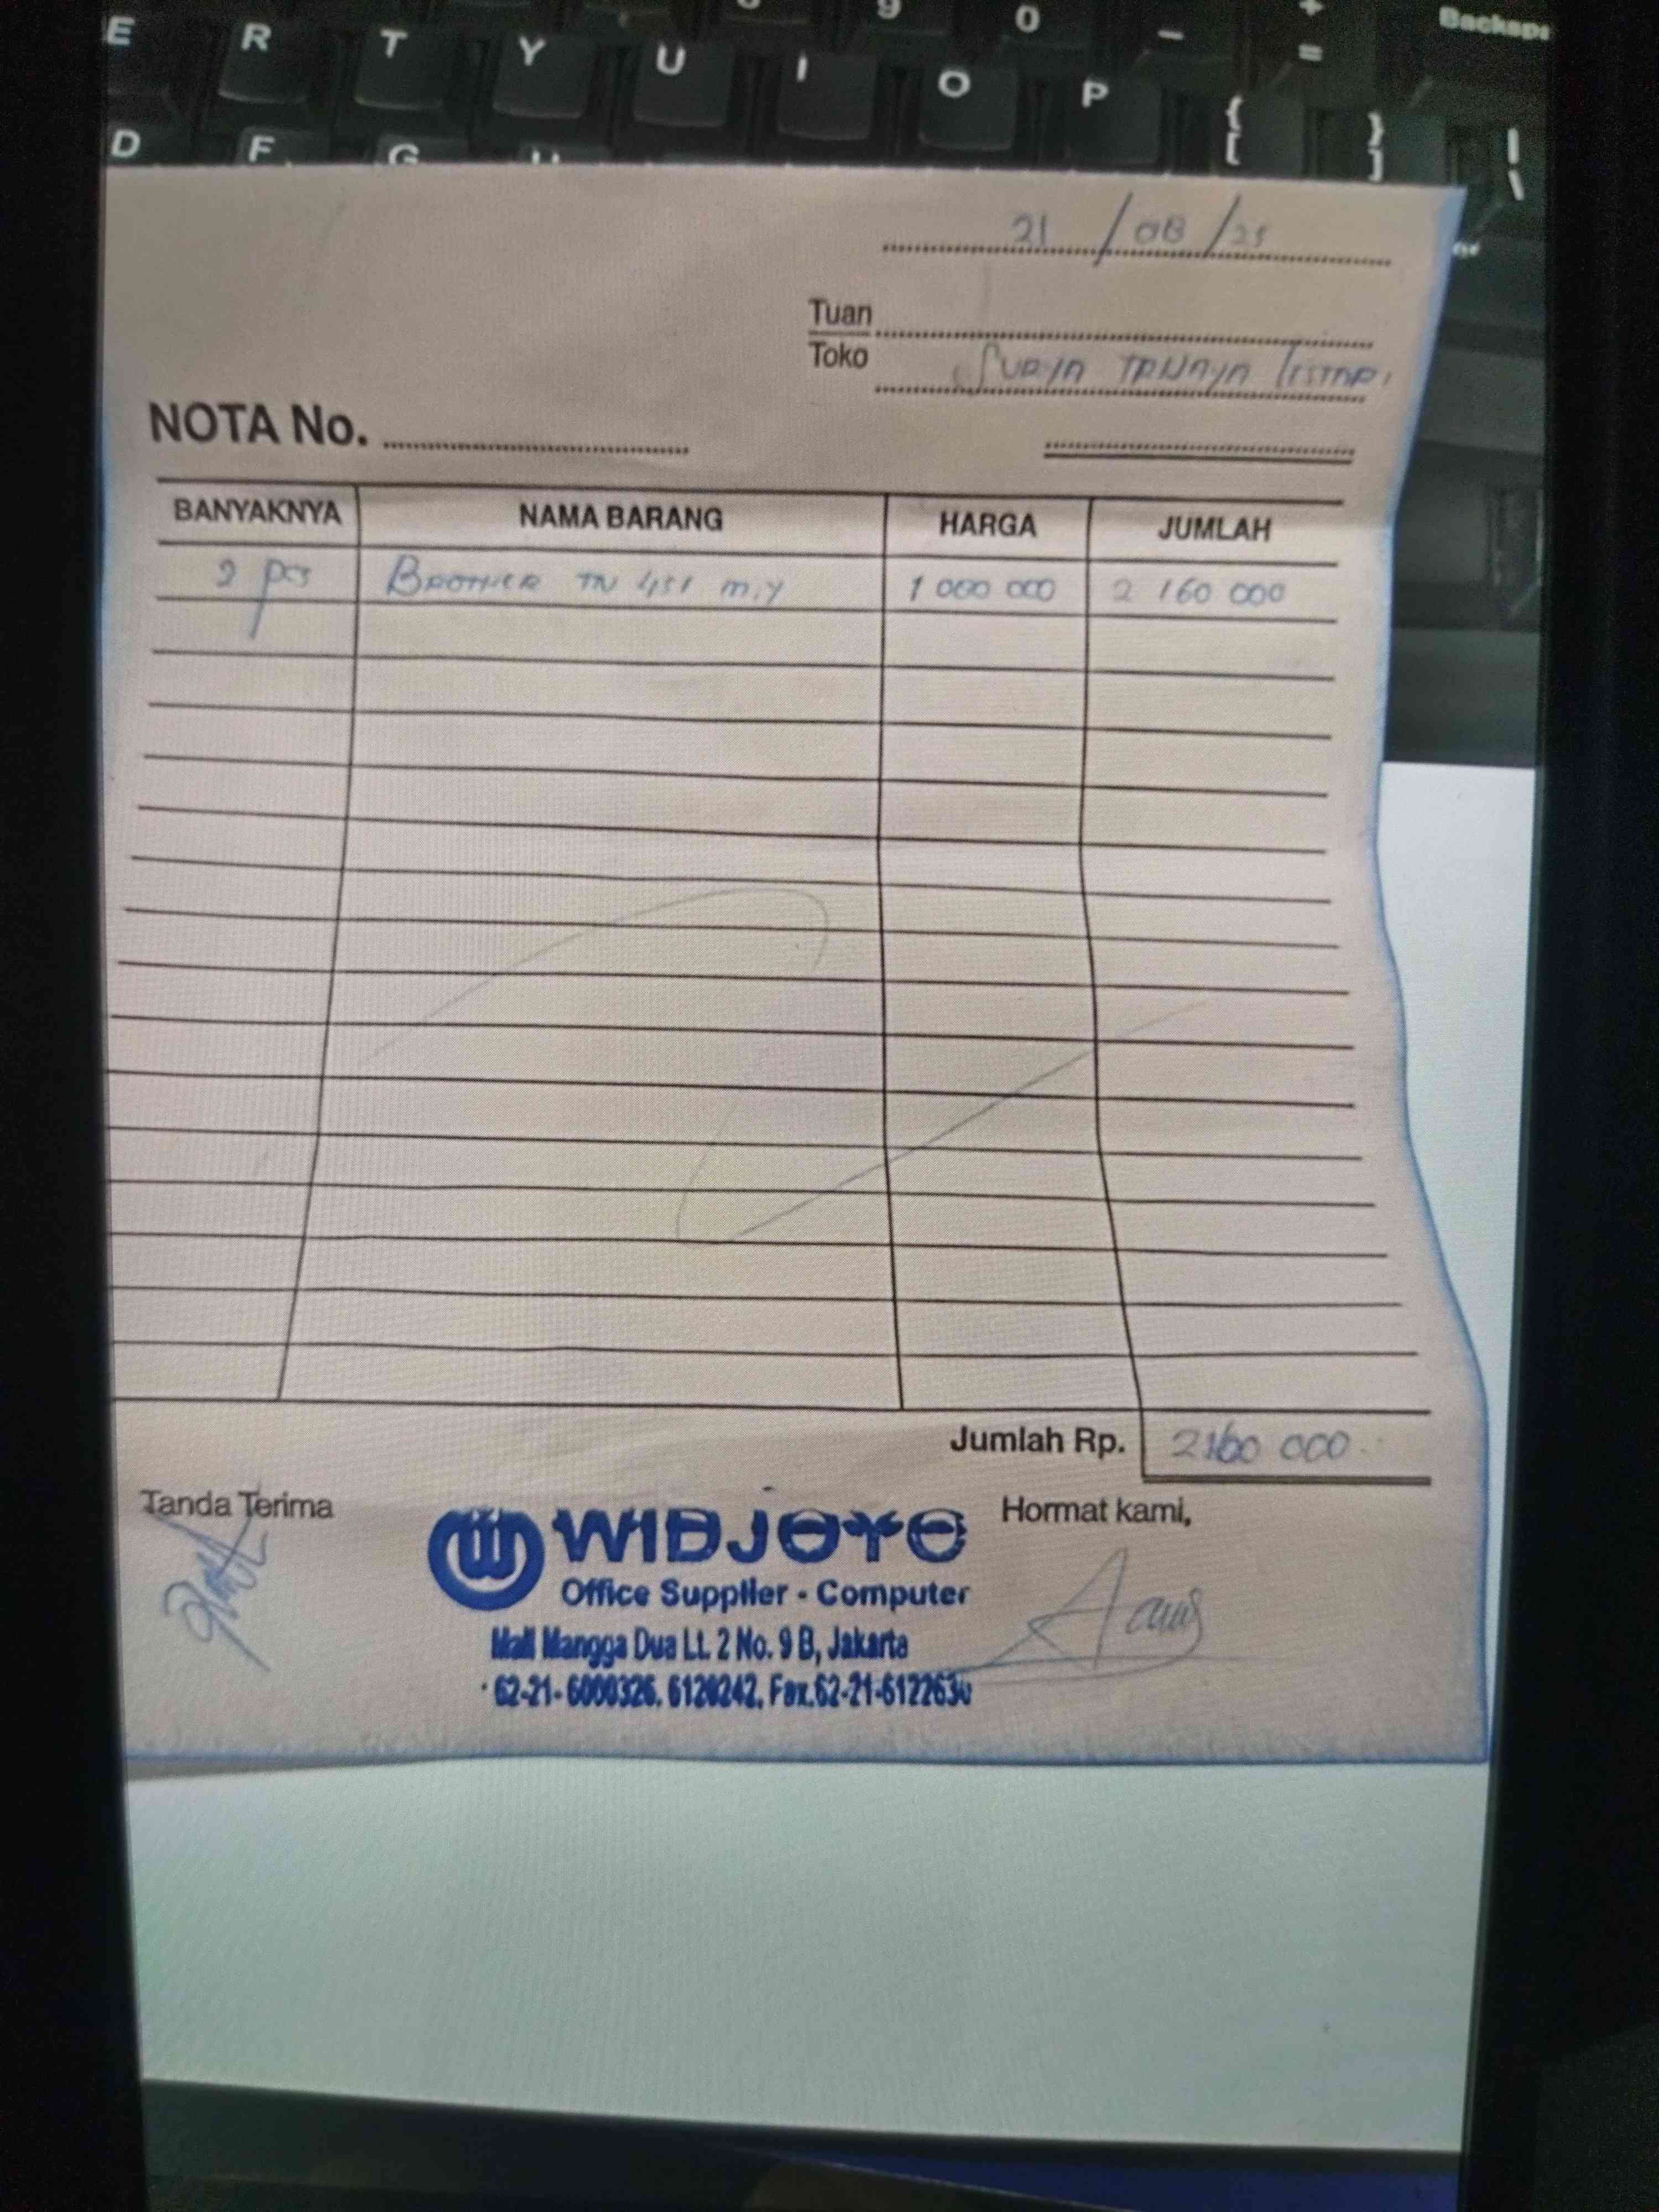 E R T Y U I O P { [ } ] | \
9 0 - + = Backspa
D F G
21 / 08 / 25
Tuan
Toko SURYA TRIJAYA LESTARI
NOTA No.
BANYAKNYA NAMA BARANG HARGA JUMLAH
2 pcs BROTHER TN 451 M,Y 1 000 000 2 160 000
Jumlah Rp. 2160 000
Tanda Terima
Hormat kami,
WIDJOYO
Office Supplier - Computer
Mall Mangga Dua Lt. 2 No. 9 B, Jakarta
62-21-6000326, 6120242, Fax.62-21-6122630